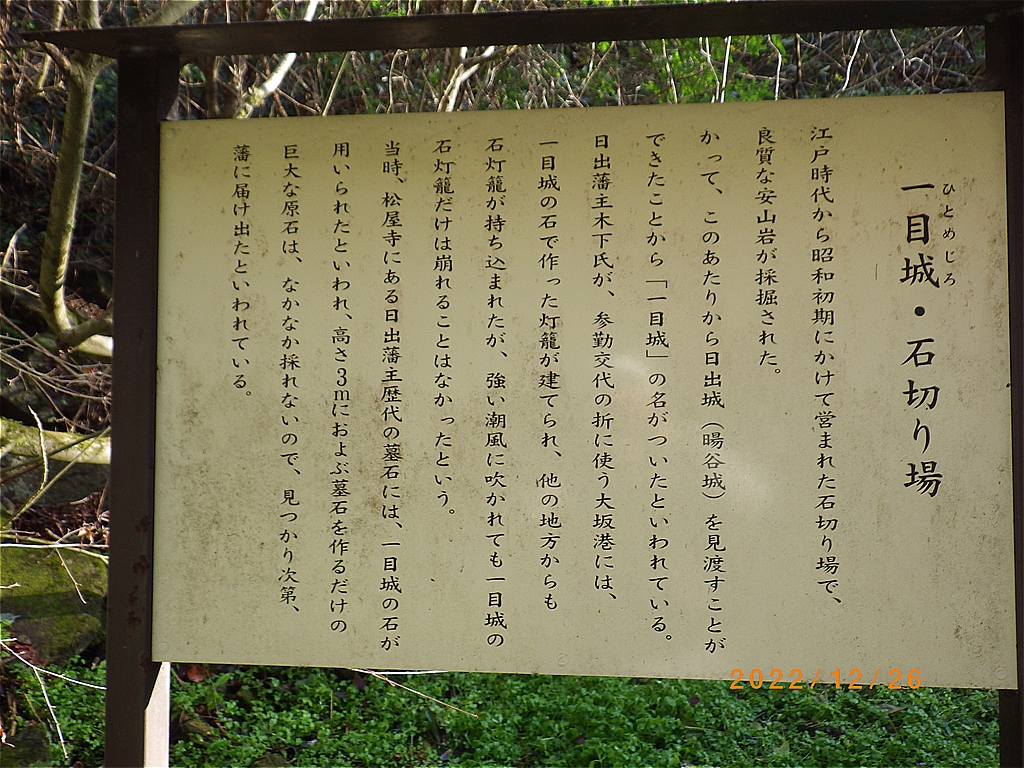 一目城・石切り場
ひとめじろ
江戸時代から昭和初期にかけて営まれた石切り場で、
良質な安山岩が採掘された。
かって、このあたりから日出城（暘谷城）を見渡すことが
できたことから「一目城」の名がついたといわれている。
日出藩主木下氏が、参勤交代の折に使う大坂港には、
一目城の石で作った灯籠が建てられ、他の地方からも
石灯籠が持ち込まれたが、強い潮風に吹かれても一目城の
石灯籠だけは崩れることはなかったという。
当時、松屋寺にある日出藩主歴代の墓石には、一目城の石が
用いられたといわれ、高さ3mにおよぶ墓石を作るだけの
巨大な原石は、なかなか採れないので、見つかり次第、
藩に届け出たといわれている。
2022/12/26